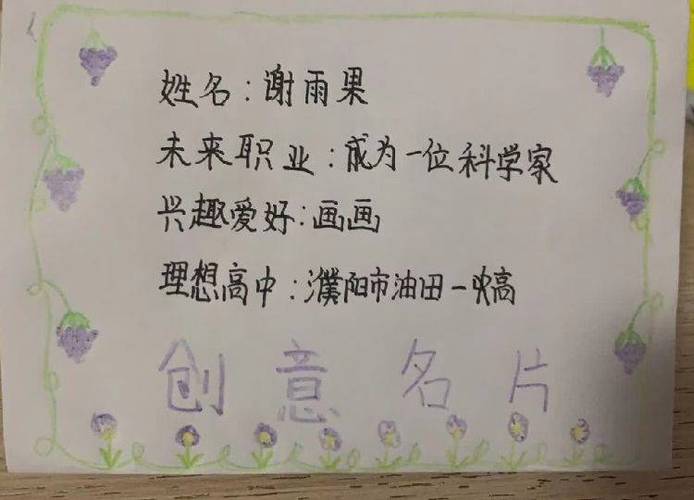 姓名：谢雨果
未来职业：成为一位科学家
兴趣爱好：画画
理想高中：濮阳市油田一高
创意名片